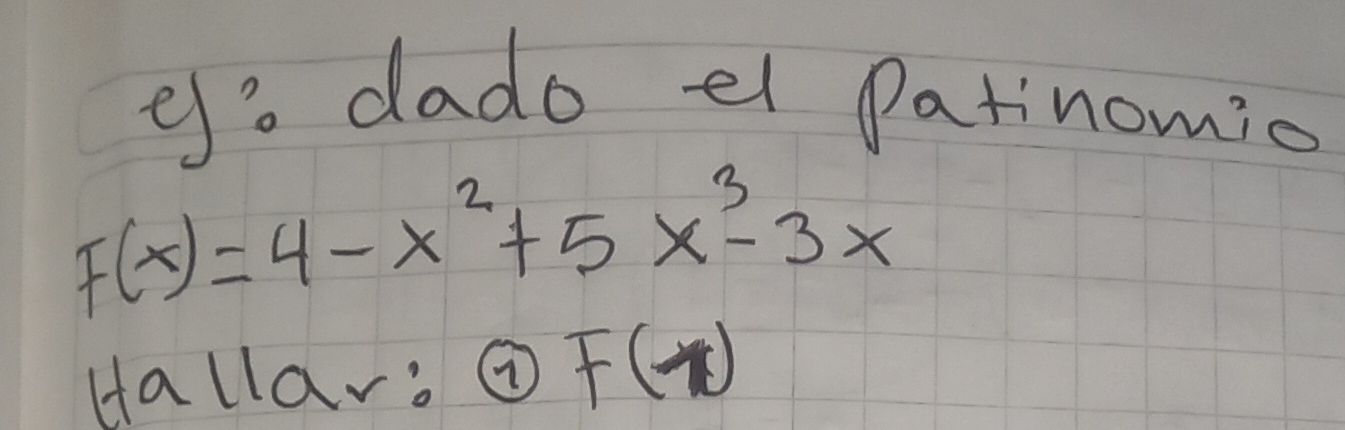 ej: dado el Patinomio
F(x)=4-x²+5x³-3x
Hallar: ① F(1)